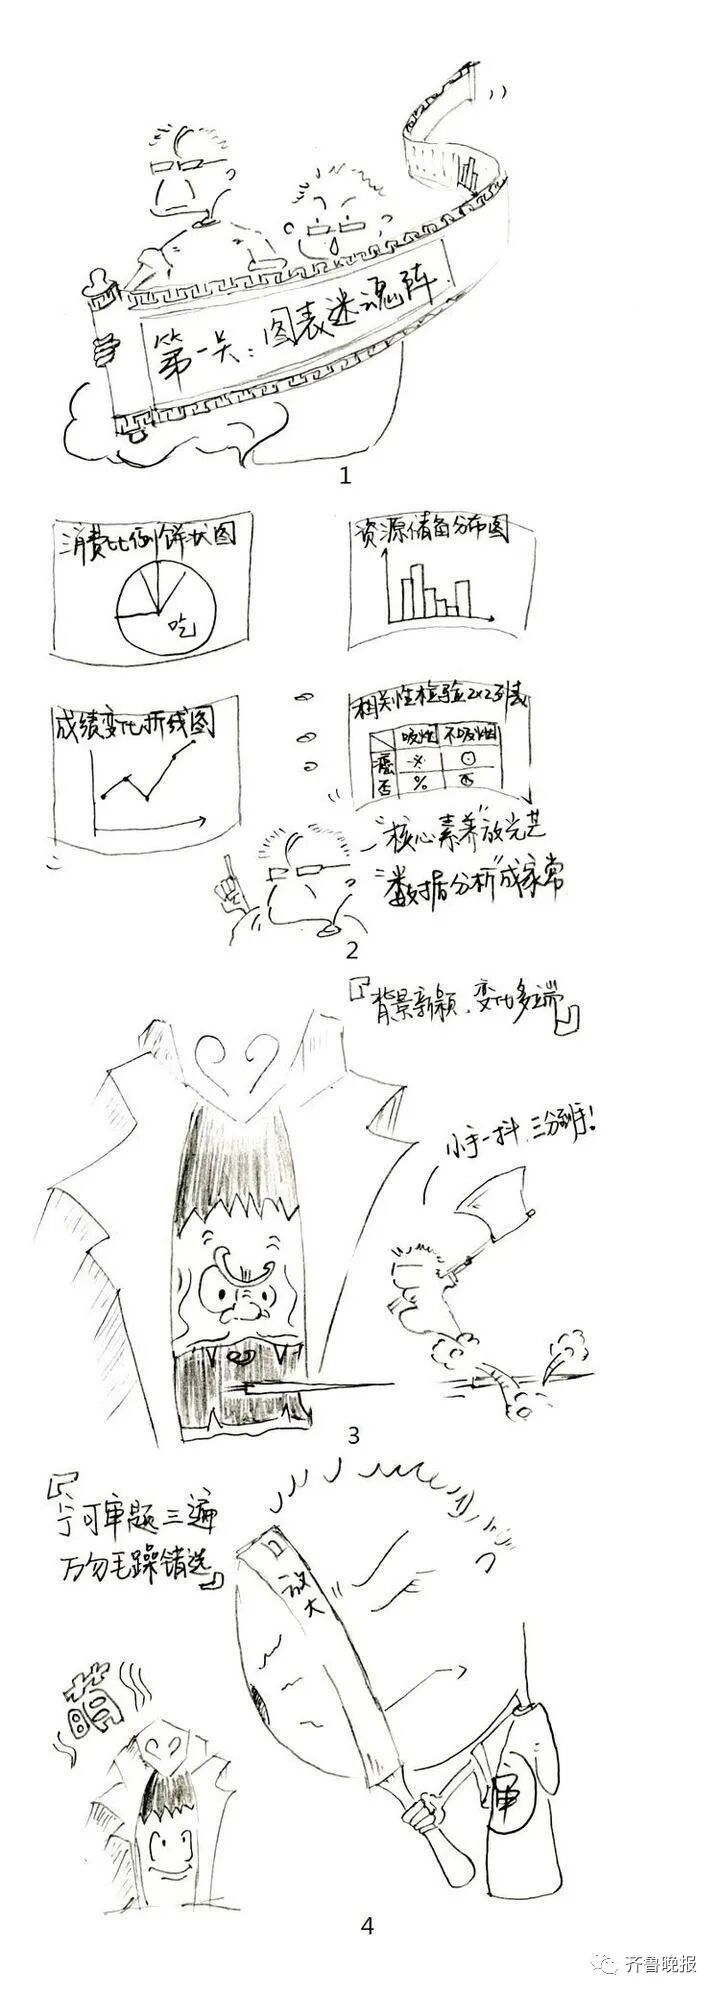 第一关：图表迷魂阵
1
消费比例饼状图
吃
资源储备分布图
成绩变化折线图
相关性检验2×2列表
吸烟 不吸烟
癌
否 %
"核心素养"放光芒
"数据分析"成家常
2
『背景新颖、变化多端』
小手一抖，三分到手！
3
『宁可审题三遍
万勿毛躁错选』
放大
萌
审
4
齐鲁晚报